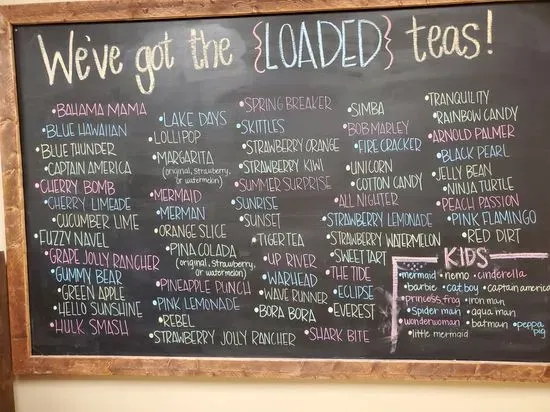 We've got the {LOADED} teas!
•BAHAMA MAMA
•BLUE HAWAIIAN
•BLUE THUNDER
•CAPTAIN AMERICA
•CHERRY BOMB
•CHERRY LIMEADE
•CUCUMBER LIME
•FUZZY NAVEL
•GRAPE JOLLY RANCHER
•GUMMY BEAR
•GREEN APPLE
•HELLO SUNSHINE
•HULK SMASH
•LAKE DAYS
•LOLLIPOP
•MARGARITA
(original, strawberry,
or watermelon)
•MERMAID
•MERMAN
•ORANGE SLICE
•PINA COLADA
(original, strawberry,
or watermelon)
•PINEAPPLE PUNCH
•PINK LEMONADE
•REBEL
•STRAWBERRY JOLLY RANCHER
•SPRING BREAKER
•SKITTLES
•STRAWBERRY ORANGE
•STRAWBERRY KIWI
•SUMMER SURPRISE
•SUNRISE
•SUNSET
•TIGER TEA
•UP RIVER
•WARHEAD
•WAVE RUNNER
•BORA BORA
•SHARK BITE
•SIMBA
•BOB MARLEY
•FIRE CRACKER
•UNICORN
•COTTON CANDY
•ALL NIGHTER
•STRAWBERRY LEMONADE
•STRAWBERRY WATERMELON
•SWEETART
•THE TIDE
•ECLIPSE
•EVEREST
•TRANQUILITY
•RAINBOW CANDY
•ARNOLD PALMER
•BLACK PEARL
•JELLY BEAN
•NINJA TURTLE
•PEACH PASSION
•PINK FLAMINGO
•RED DIRT
KIDS
•mermaid •nemo •cinderella
•barbie •cat boy •captain america
•princess frog •iron man
•spider man •aqua man
•wonderwoman •batman •peppa pig
•little mermaid